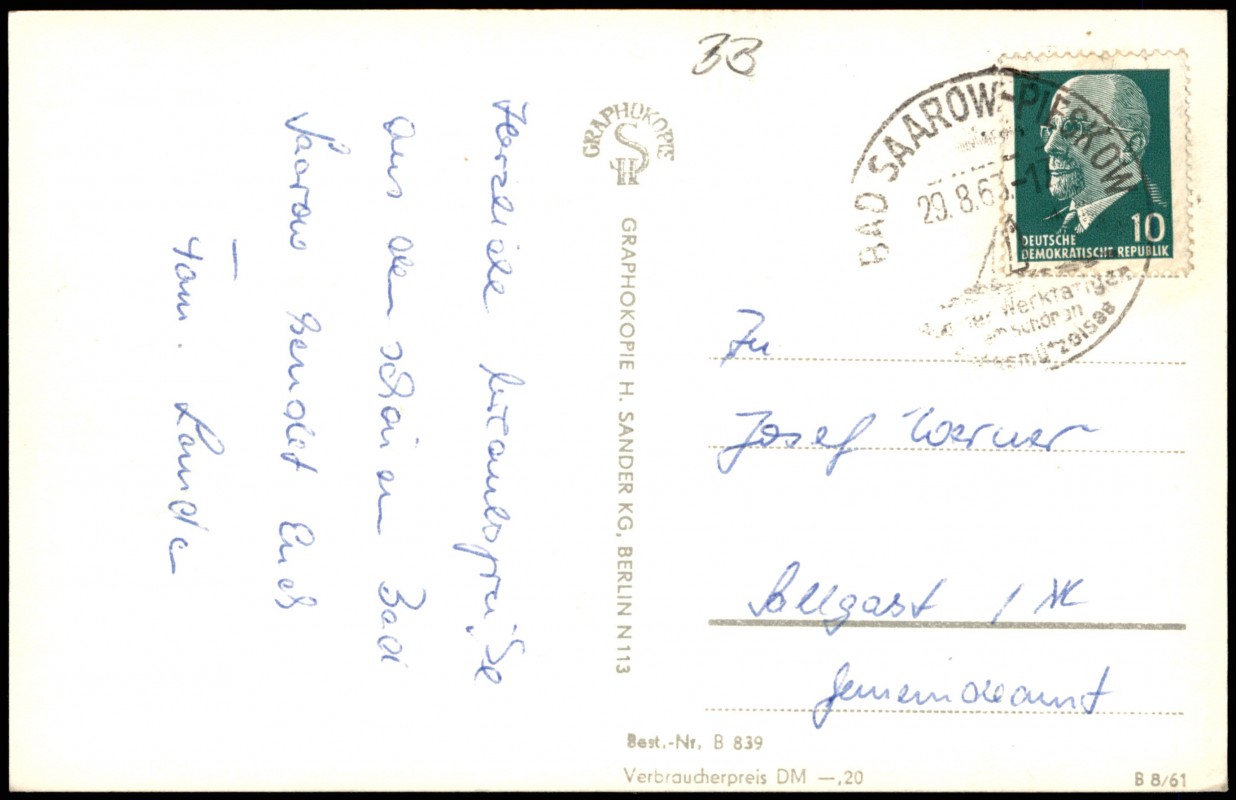 Herzliche Urlaubsgrüße
aus dem schönen Bad
Saarow sendet Euch
Fam.
33
GRAPHOKOPIE
GRAPHOKOPIE H. SANDER KG, BERLIN N 113
BAD SAAROW-PIESKOW
29.8.63-17
Werktätigen
am schönen
10
DEUTSCHE
DEMOKRATISCHE REPUBLIK
Zu
Josef Werner
Sallgast / NL
Gemeindeamt
Best.-Nr. B 839
Verbraucherpreis DM —,20
B 8/61